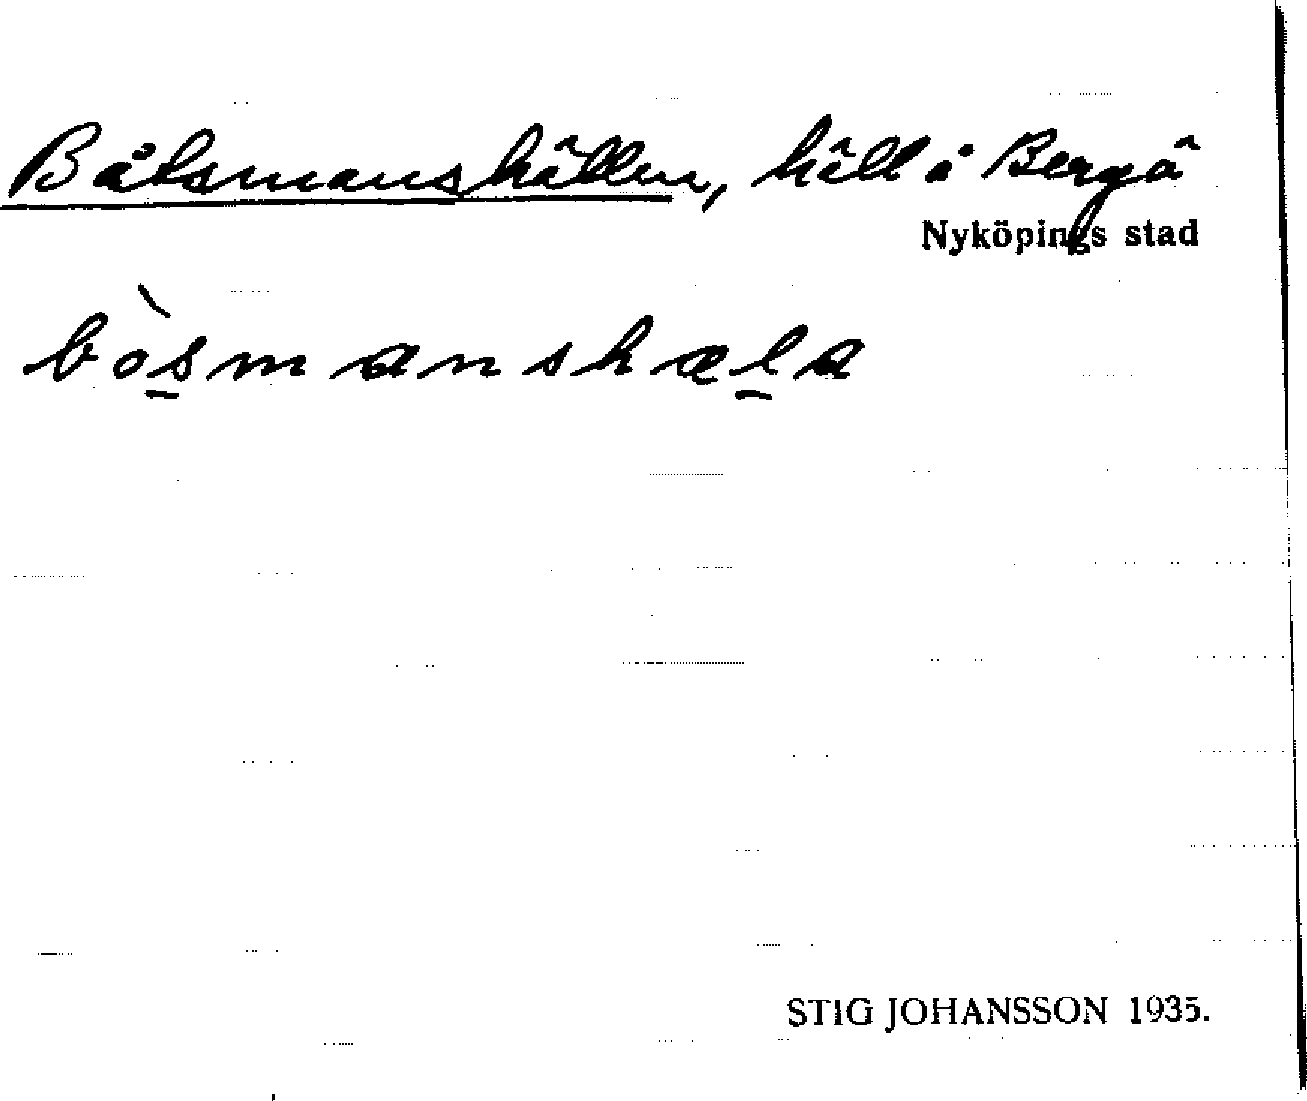 Båtsmanshällen, häll å Bergö
Nyköpings stad
bòsmanshæla
STIG JOHANSSON 1935.